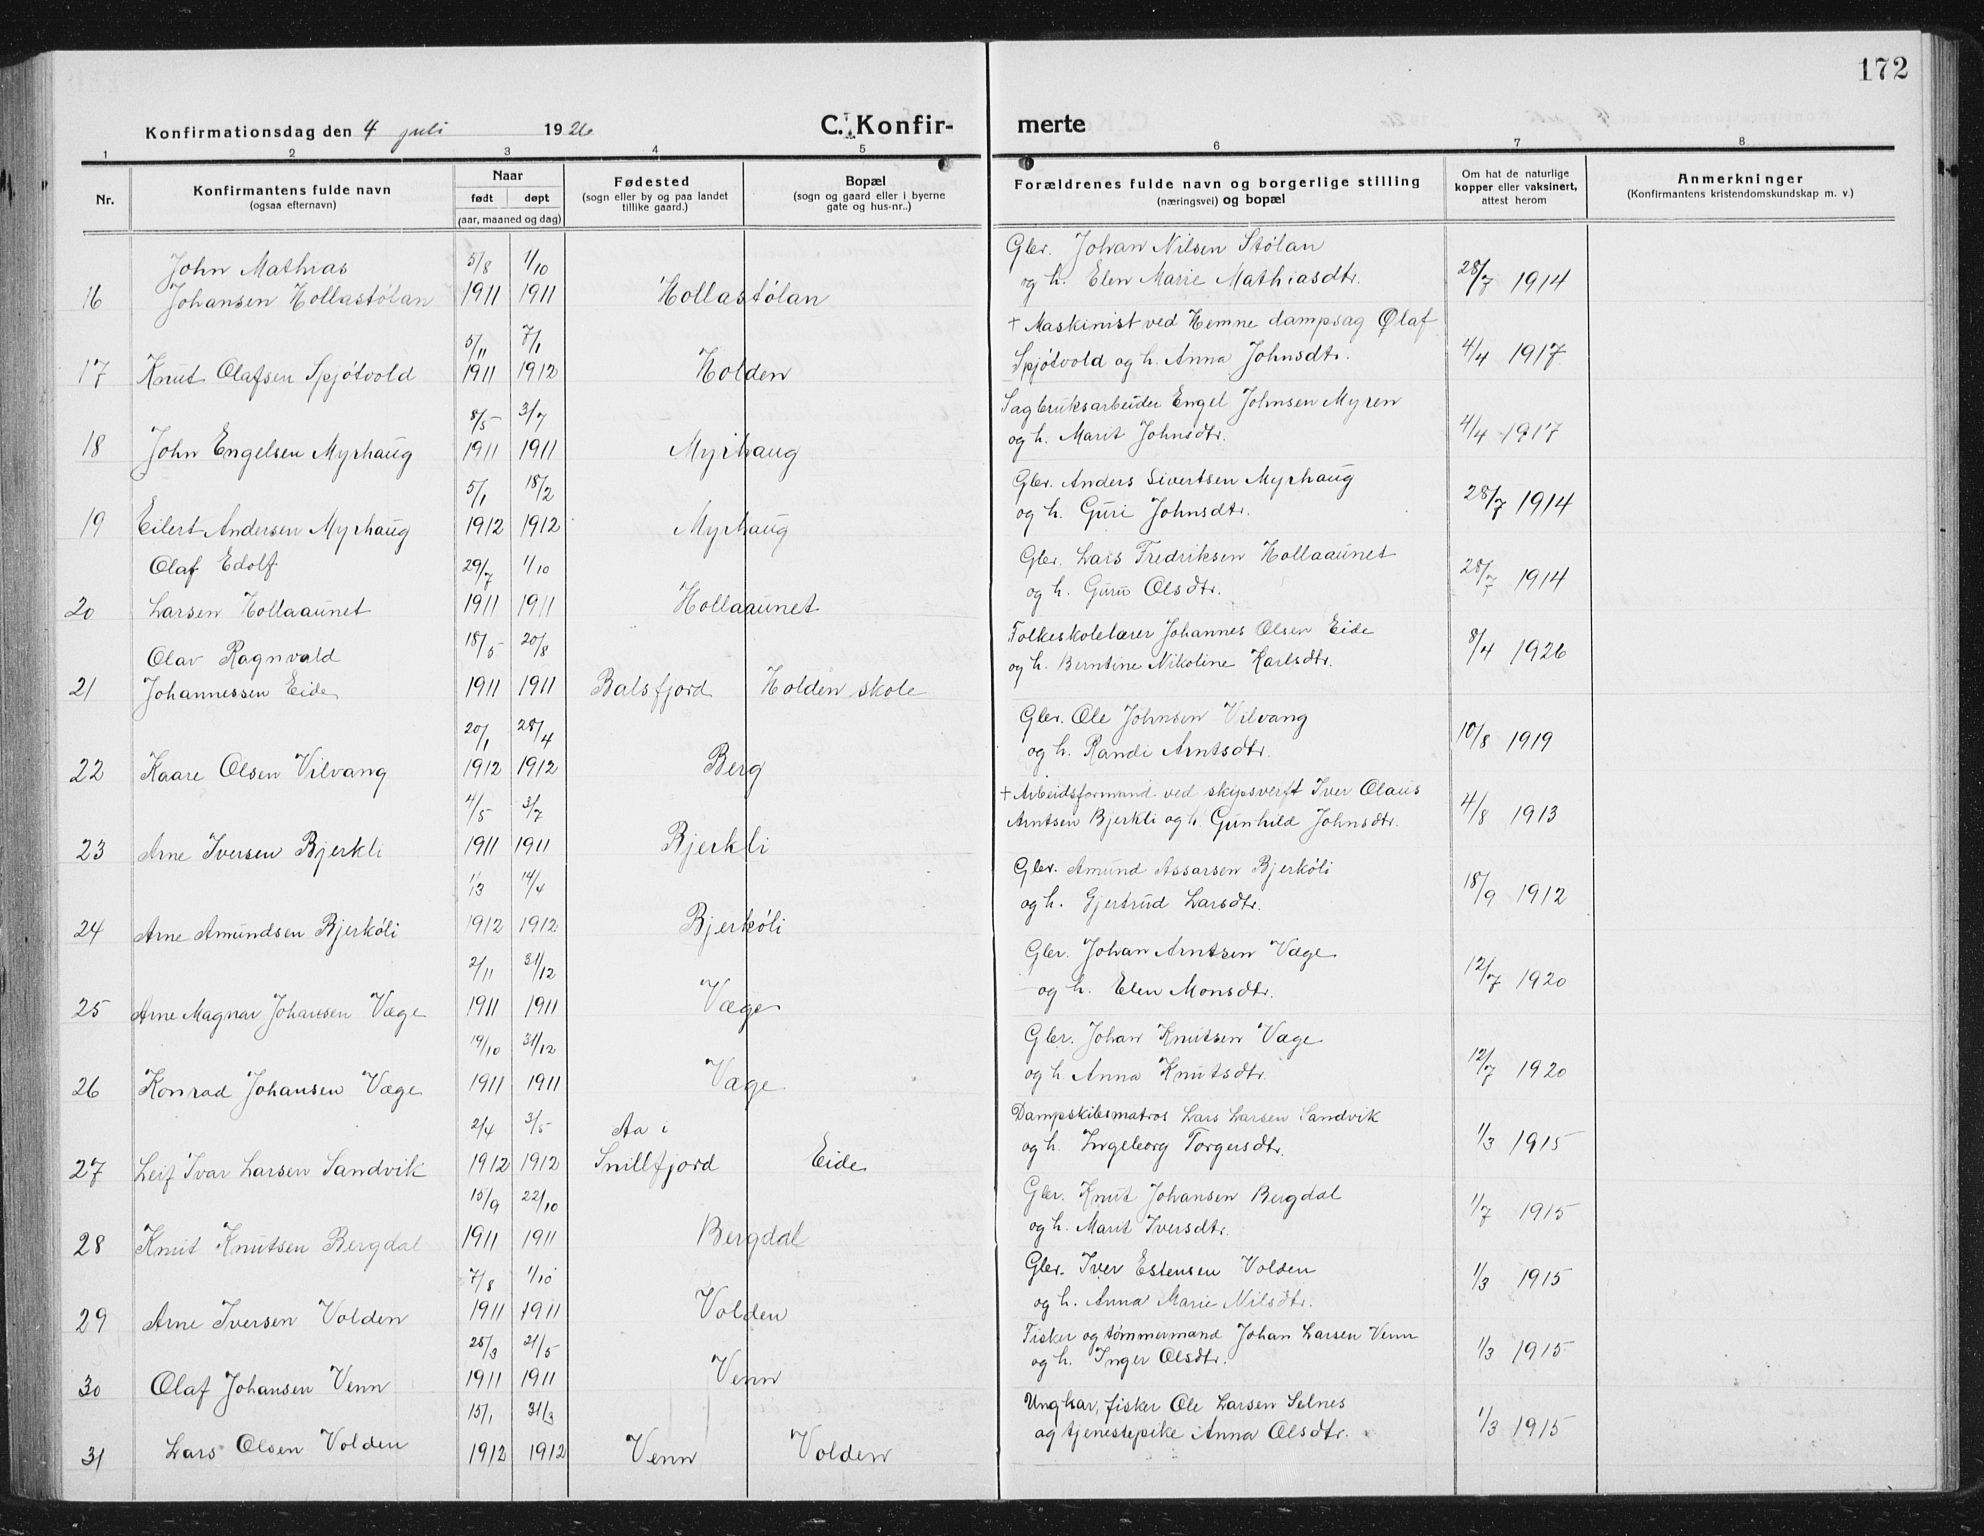 172
Konfirmationsdag den 4 juli 1926
C. Konfir-
merte
1 2 3 4 5 6 7 8
Nr.
Konfirmantens fulde navn
(ogsaa efternavn)
Naar
født døpt
(aar, maaned og dag)
Fødested
(sogn eller by og paa landet
tillike gaard.)
Bopæl
(sogn og gaard eller i byerne
gate og hus-nr..)
Forældrenes fulde navn og borgerlige stilling
(næringsvei) og bopæl
Om hat de naturlige
kopper eller vaksinert,
attest herom
Anmerkninger
(Konfirmantens kristendomskundskap m. v.)
John Mathias 5/8 1/10 Gbr. Johan Nilsen Stølan
16 Johansen Hollastølan 1911 1911 Hollastølan og h. Elen Marie Mathiasdtr. 28/7 1914
5/11 7/1 + Maskinist ved Hemne dampsag Olaf
17 Knut Olafsen Spjøtvold 1911 1912 Holden Spjøtvold og h. Anna Johnsdtr. 4/4 1917
8/5 3/7 Sagbruksarbeider Engel Johnsen Myren
18 John Engelsen Myrhaug 1911 1911 Myrhaug og h. Marit Johnsdtr. 4/4 1917
5/1 18/2 Gbr. Anders Sivertsen Myrhaug
19 Eilert Andersen Myrhaug 1912 1912 Myrhaug og h. Guri Johnsdtr. 28/7 1914
Olaf Edolf 29/7 1/10 Gbr. Lars Fredriksen Hollaaunet
20 Larsen Hollaaunet 1911 1911 Hollaaunet og h. Guru Olsdtr. 28/7 1914
Olav Ragnvald 18/5 20/8 Folkeskolelærer Johannes Olsen Eide
21 Johannessen Eide 1911 1911 Balsfjord Holden skole og h. Berntine Nikoline Karlsdtr. 8/4 1926
20/1 28/4 Gbr. Ole Johnsen Vilvang
22 Kaare Olsen Vilvang 1912 1912 Berg og h. Randi Arntsdtr. 10/8 1919
4/5 3/7 + Arbeidsformand ved skipsverft Iver Olaus
23 Arne Iversen Bjerkli 1911 1911 Bjerkli Arntsen Bjerkli og h. Gunhild Johnsdtr. 4/8 1913
1/3 14/4 Gbr. Amund Assarsen Bjerkøli
24 Arne Amundsen Bjerkøli 1912 1912 Bjerkøli og h. Gjertrud Larsdtr. 18/9 1912
2/11 31/12 Gbr. Johan Arntsen Væge
25 Arne Magnar Johansen Væge 1911 1911 Væge og h. Elen Monsdtr. 12/7 1920
19/10 31/12 Gbr. Johan Knutsen Væge
26 Konrad Johansen Væge 1911 1911 Væge og h Anna Knutsdtr. 12/7 1920
2/4 3/5 Aa i Dampskibsmatros Lars Larsen Sandvik
27 Leif Ivar Larsen Sandvik 1912 1912 Snillfjord Eide og h. Ingeborg Torgersdtr. 1/3 1915
15/9 22/10 Gbr. Knut Johansen Bergdal
28 Knut Knutsen Bergdal 1911 1911 Bergdal og h. Marit Iversdtr. 1/7 1915
7/8 1/10 Gbr. Iver Estensen Volden
29 Arne Iversen Volden 1911 1911 Volden og h. Anna Marie Nilsdtr. 1/3 1915
25/3 21/5 Fisker og tømmermand Johan Larsen Venn
30 Olaf Johansen Venn 1911 1911 Venn og h. Inger Olsdtr. 1/3 1915
15/1 31/3 Ungkar, fisker Ole Larsen Selnes
31 Lars Olsen Volden 1912 1912 Venn Volden og tjenestepike Anna Olsdtr. 1/3 1915